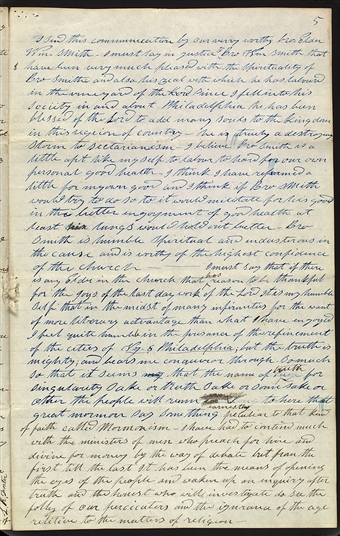 5
I send this communication by our very worthy bro Elder
Wm Smith. I must say in justice Bro Wm Smith that
have been very much pleased with the spirituality of
Bro Smith and also his zeal with which he has labour'd
in the vineyard of the Lord since I fell into his
Society in and about Philadelphia he has been
blessed of the Lord to add many souls to the kingdom
in this region of country— he is truly a destroying
storm to Sectarianism I believe Bro Smith is a
little apt like myself to labour to hard for our own
personal good health— I think I have reformed a
little for my own good and I think if Bro Smith
would try to do so to it would militate for his good
in the better enjoyment of good health at
least his lungs would hold out better. Bro
Smith is humble Spiritual and industerous in
the cause and is worthy of the highest confidence
of the church — I must say that if there
is any Elder in the church that has reason to be thankful
for the joys of the last day work of the Lord it is my humble
self that in the midst of many infirmities for the want
of more literary advantage than what I have enjoyed
I feel quite humble in the presence of the refinement
of the citizens of Philadelphia, but the truth is
mighty; and bears me conqueror through So much
so that it seems that the name of truth for
singularity Sake or truth Sake or Some sake or
other the people will run to here that
great mormon Say Something peculiar to that kind
of faith called Mormonism— I have had to contend much
with the ministers of men who preach for hire and
divine for money by the way of debate but from the
first till the last it has been the means of opening
the eyes of the people and waken up an inquiry after
truth and the honest who will investigate do see the
folley of our persecutors and the ignorance of the age
relitive to the matters of religion—